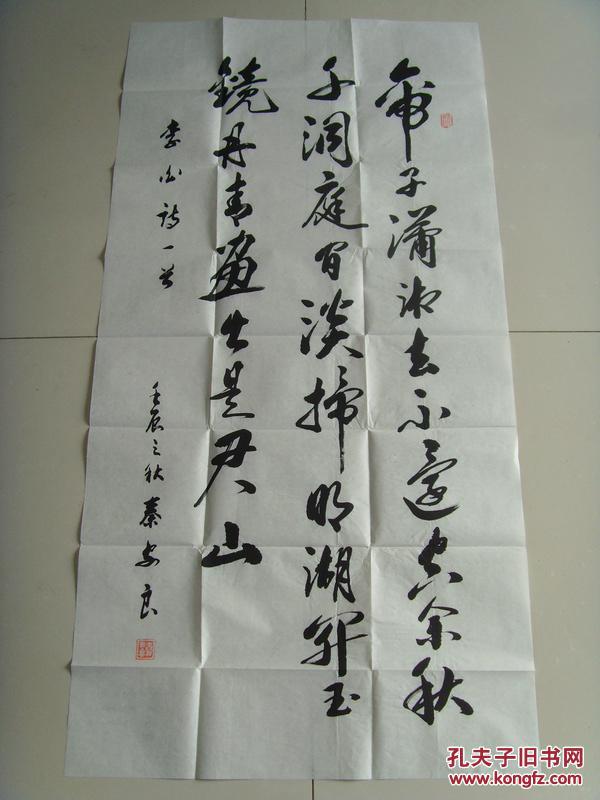 帝子瀟湘去不還空余秋
草洞庭間淡掃明湖開玉
鏡丹青畫出是君山
李白詩一首
壬辰之秋秦安良
孔夫子旧书网
www.kongfz.com